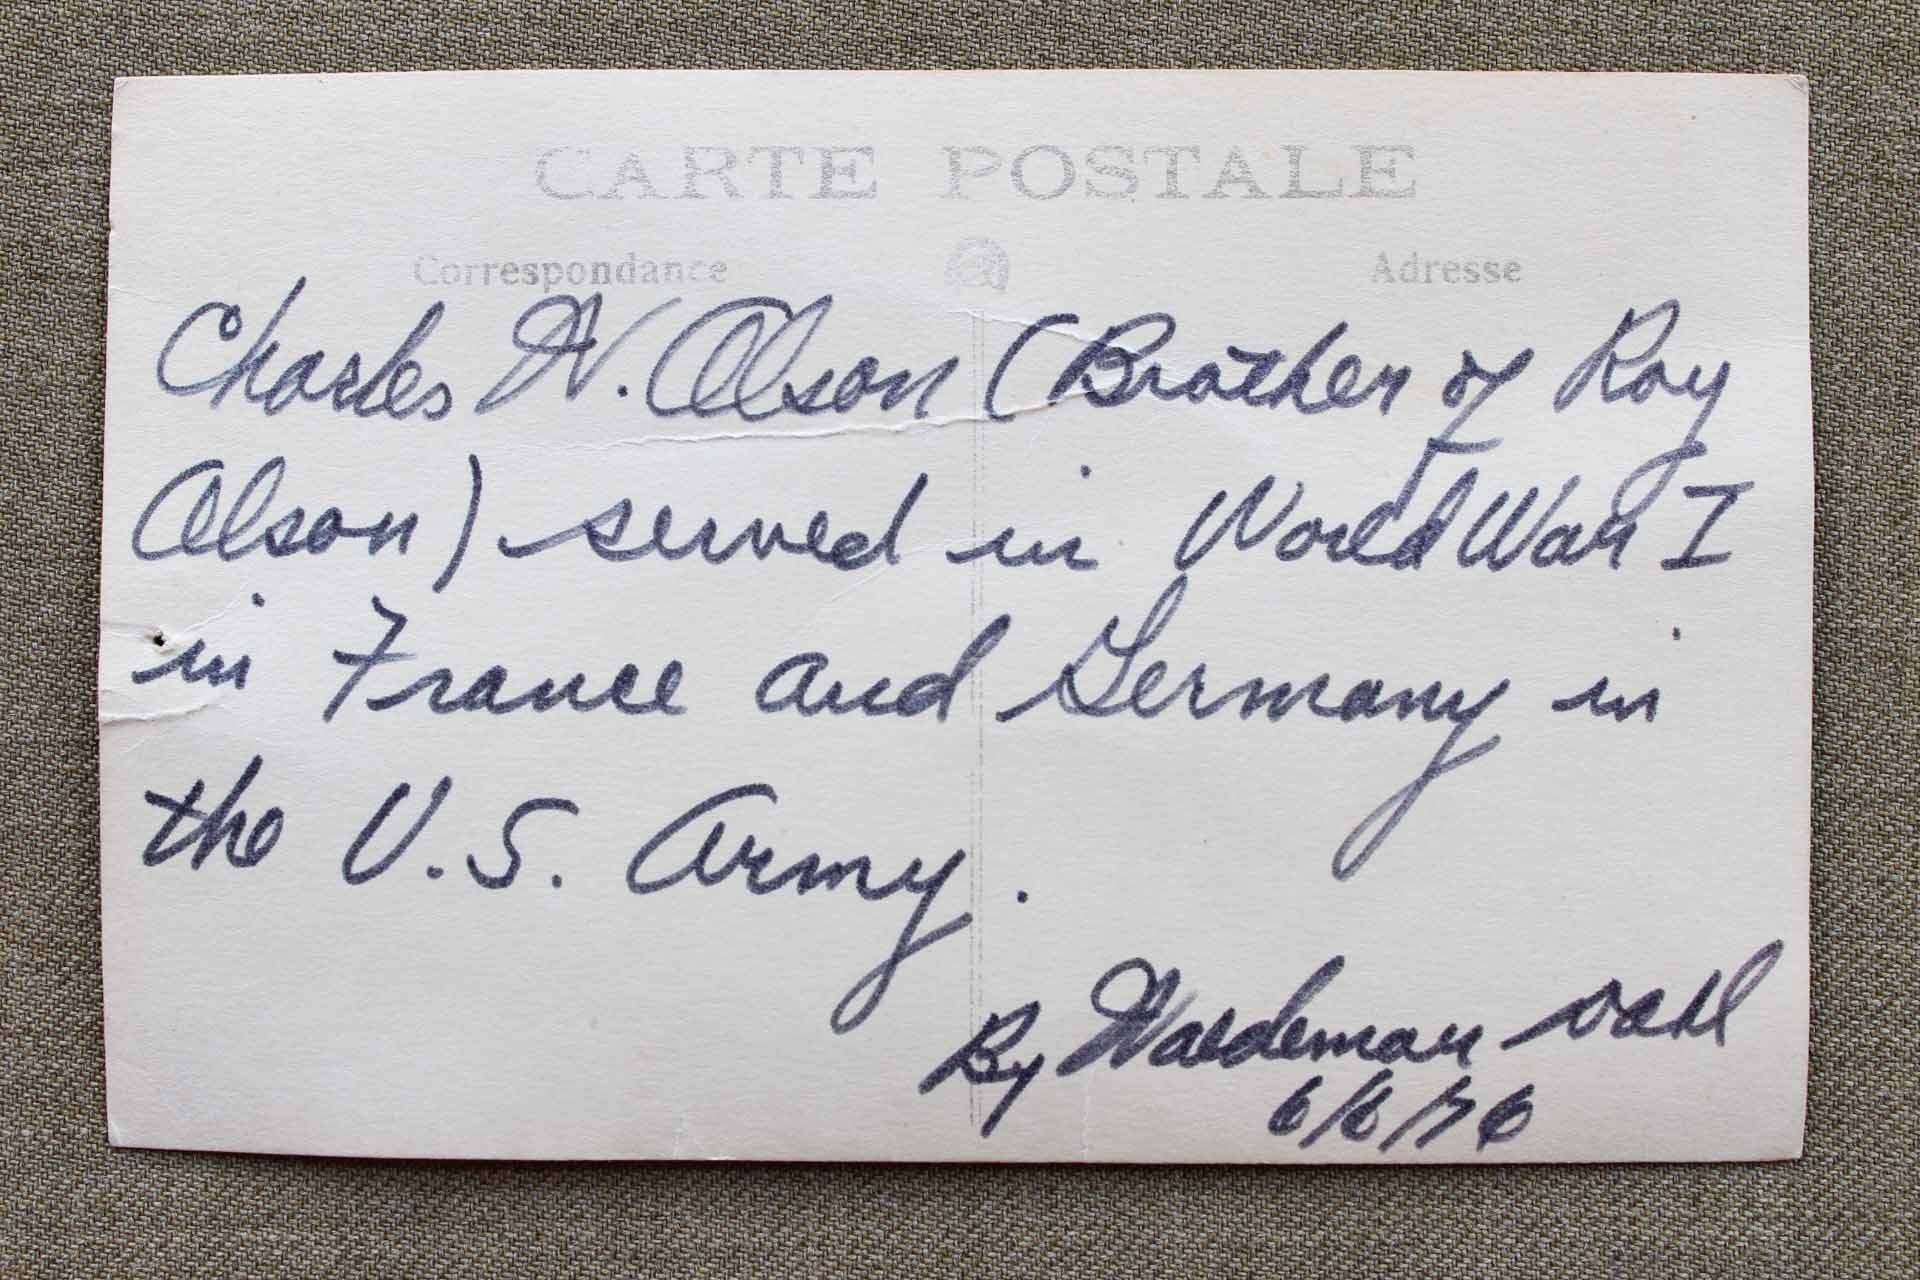 CARTE POSTALE
Correspondance Adresse
Charles W. Olson (Brother of Roy
Olson) served in World War I
in France and Germany in
the U.S. Army.
By Waldeman Dahl
6/6/76